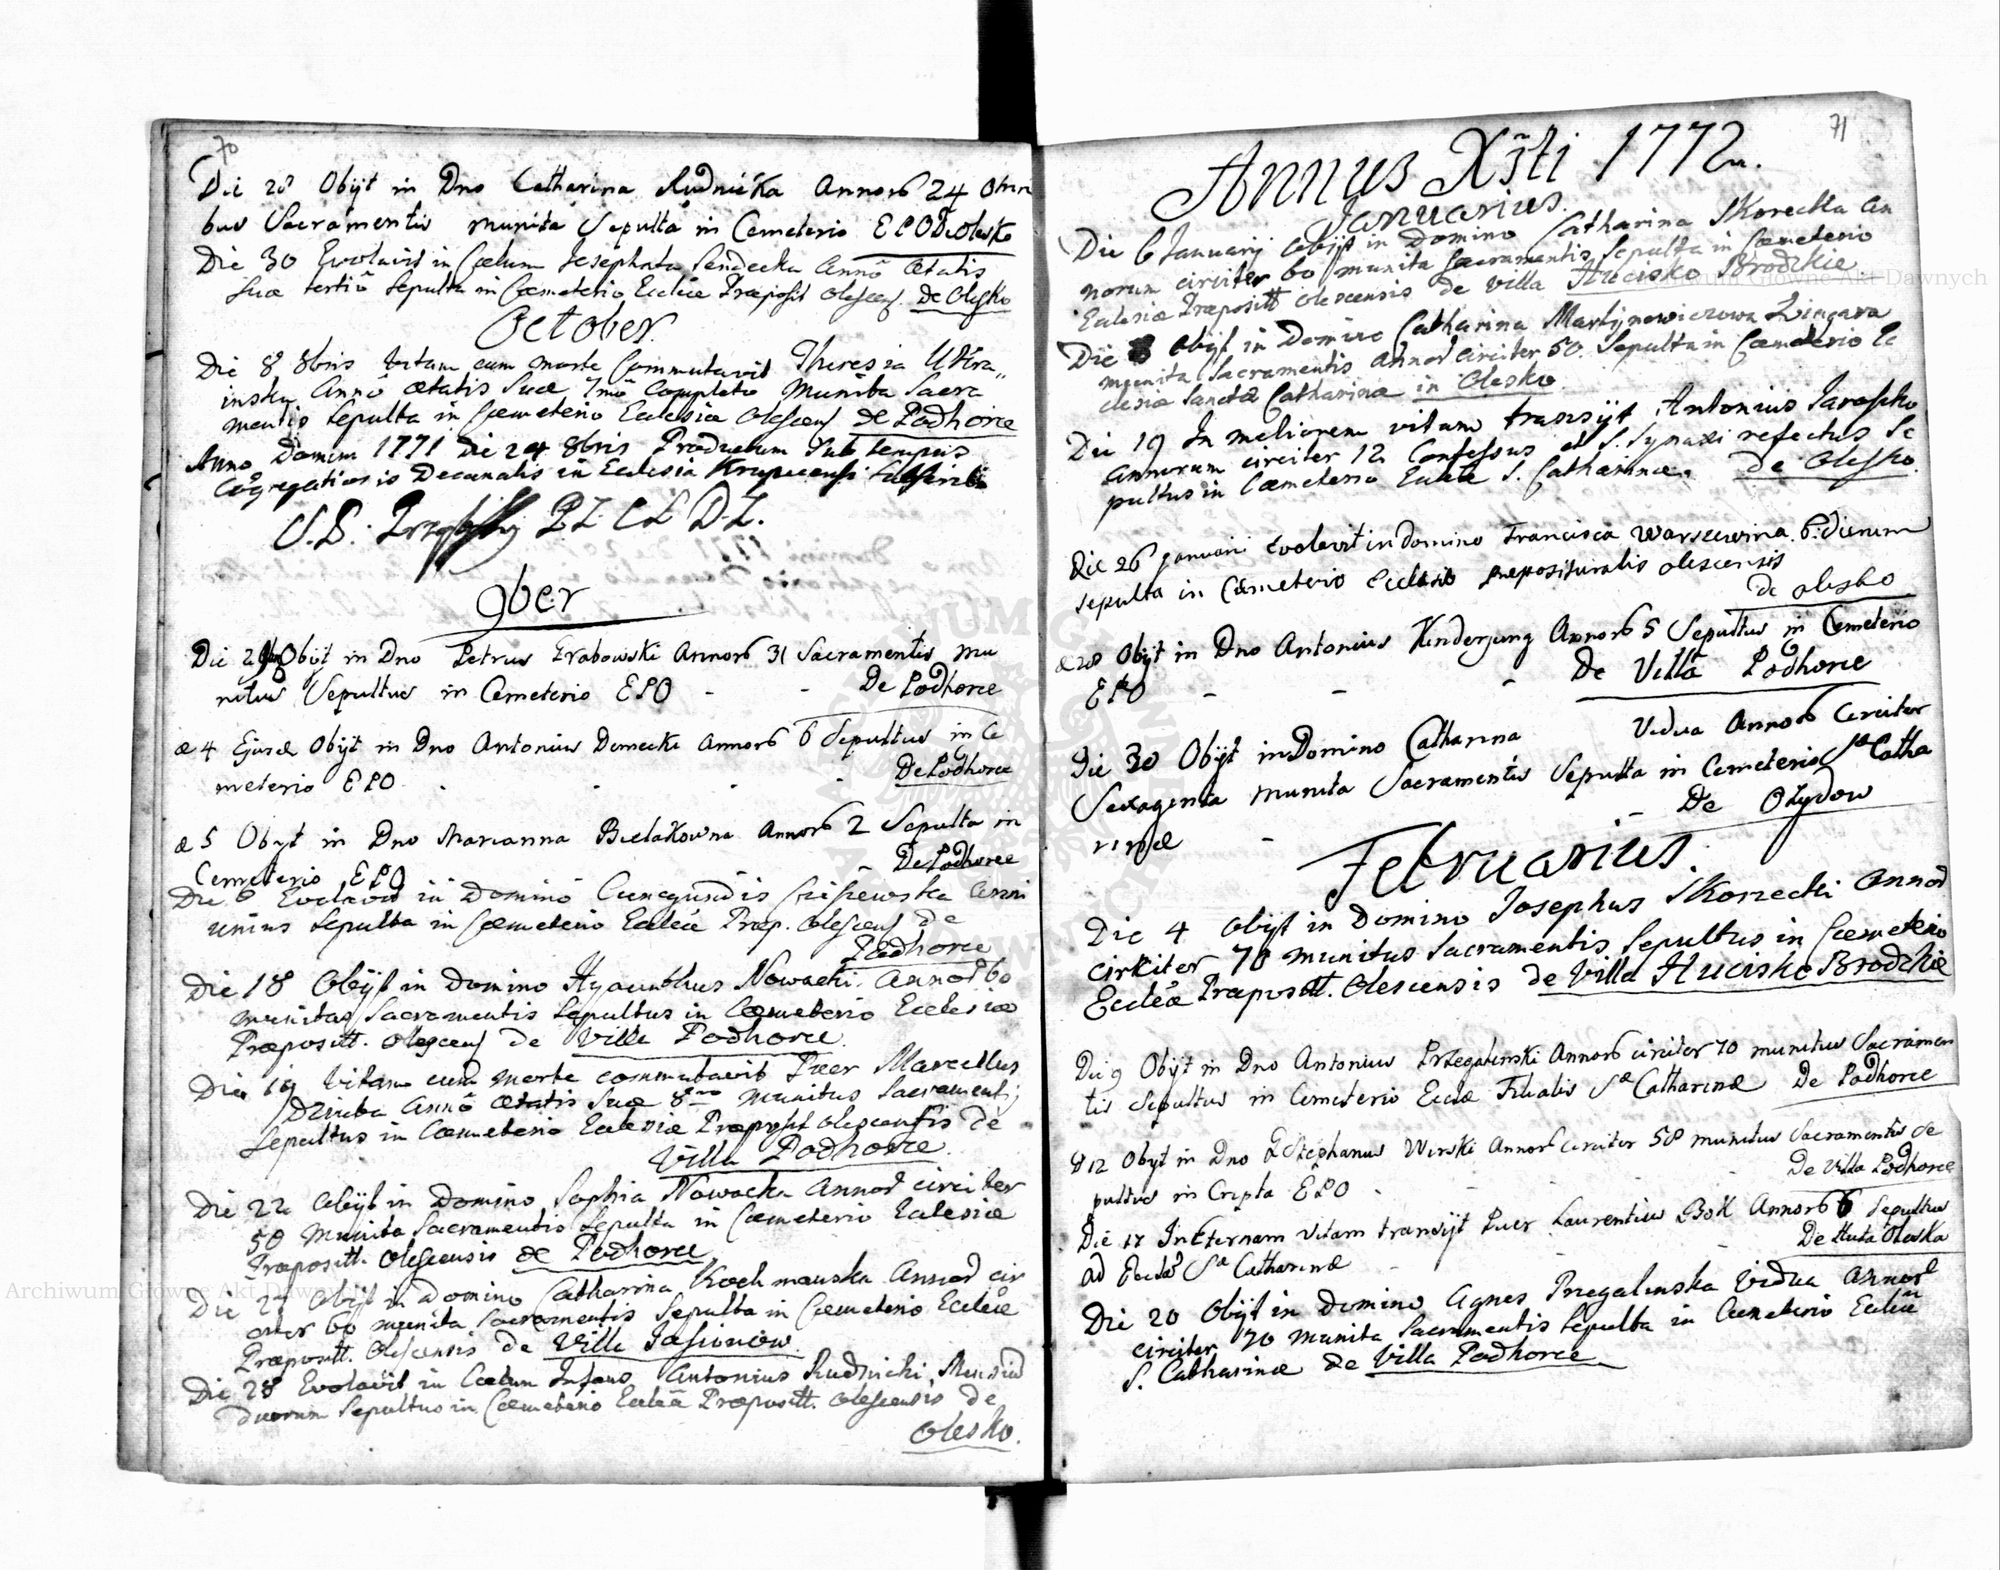 70
Die 28 Obijt in Dno Catharina Rudnicka Annorō 24 Omni
bus Sacramentis munita Sepulta in Cemeterio EPO De Olesko
Die 30 Evolavit in Cœlum Josephata Sendecka Annō Ætatis
suæ tertiō Sepulta in Cœmeterio Eccleiæ Præposit Olescens. De Olesko
October.
Die 8 8bris Vitam cum morte Commutavit Theresia Ukra„
inska Annō ætatis Suæ 7mō Completo Munita Sacra
mentis Sepulta in Cœmeterio Eclesiæ Olescens de Podhorce
Anno Domini 1771 Die 24 8bris Productum Sub tempus
Cōgregationis Decanalis in Eclesia
9ber
Die Obijt in Dno Petrus Grabowski Annorō 31 Sacramentis mu
nitus Sepultus in Cemeterio EPO - - De Podhorce
æ 4 Ejusd Obijt in Dno Antonius Demecki Annorō 6 Sepultus in Ce
meterio EPO De Podhorce
æ 5 Obijt in Dno Marianna Bielakowna Annorō 2 Sepulta in
Cemeterio EPO - De Podhorce
Die 6 Evolavit in Domino Cunegundis Anni
unius Sepulta in Cœmeterio Eccleiæ Præp. Olescens de
Podhorce
Die 18 Obijt in Domino Hyacinthus Nowacki. Annorō 60
munitus Sacramentis Sepultus in Cœmeterio Ecclesiæ
Præpositt. Olescens de Villa Podhorce.
Die 19 Vitam cum morte commutavit Puer Marcellus
Dziuba Annō Ætatis Suæ 8vo munitus Sacramentis
Sepultus in Cœmeterio Eclesiæ Præposit Olescensis de
Villa Podhorce.
Die 22 Obijt in Domino Sophia Nowacka Annorō circiter
50 Munita Sacramentis Sepulta in Cœmeterio Eclesiæ
Præpositt. Olescensis de Podhorce
Die 27 Obijt in Domino Catharina Kochmanska Annorō cir
citer 60 munita Sacramentis Sepulta in Cœmeterio Eccleiæ
Præpositt. Olescensis de Villa Jasionow.
Die 28 Evolavit in Cœlum Infans Antonius Rudnicki, Mensiū
duorum Sepultus in Cœmeterio Eccleiæ Præpositt. Olescensis de
Olesko.
71
Annus Xsti 1772.
Januarius.
Die 6 Januarij Obijt in Domino Catharina Skorecka An
norum circiter 60 munita Sacramentis Sepulta in Cœmeterio
Eclesiæ Præpositt Olescensis de Villa Hucisko Brodzkie.
Die 8 Obijt in Domino Catharina Martynowiczowa Zingara
munita Sacramentis Annorō circiter 50. Sepulta in Cœmeterio Ec
clesiæ Sanctæ Catharinæ in Olesko
Die 19 In meliorem vitam transijt Antonius Jaroszko
Annorum circiter 12 Confessus et S. Synaxi refectus Se
pultus in Cœmeterio Eccle S. Catharinæ. De Olesko.
Die 26 januarii Evolavit in Domino Francisca Warszewina 6: dierum
sepulta in Cæmeterio Præposituralis olescensis
de olesko
æ 28 Obijt in Dno Antonius Kinderjung Annorō 5 Sepultus in Cemeterio
EPO - - - De Villa Podhorce
Die 30 Obijt in Domino Catharina Vidua Annorō Circiter
Sexaginta munita Sacramentis Sepulta in Cemeterio Sæ Catha
rinæ - De Ożydow
Februarius.
Die 4 Obijt in Domino Josephus Skorzecki Annorō
cirkiter 70 munitus Sacramentis Sepultus in Cœmeterio
Eccleæ Præpositt. Olescensis de Villa Hucisko Brodzkie
Die 9 Obijt in Dno Antonius Przegalinski Annorō circiter 70 munitus Sacramen
tis Sepultus in Cemeterio Eccłæ Filialis Sæ Catharinæ De Podhorce
æ 12 Obijt in Dno Stephanus Wirski Annorō circiter 58 munitus Sacramentis Se
pultus in Cripta EPO - De Villa Podhorce
Die 17 In Eternam Vitam transijt Puer Laurentius Bok Annorō 6 Sepultus
ad Sæ Catharinæ De Huta Oleska
Die 20 Obijt in Domino Agnes Przegalinska Vidua Annorō
circiter 70 munita Sacramentis Sepulta in Cœmeterio Eccleiæ
S. Catharinæ de Villa Podhorce
Archiwum Główne Akt Dawnych
Archiwum Główne Akt Dawnych
ARCHIWUM GŁÓWNE AKT DAWNYCH